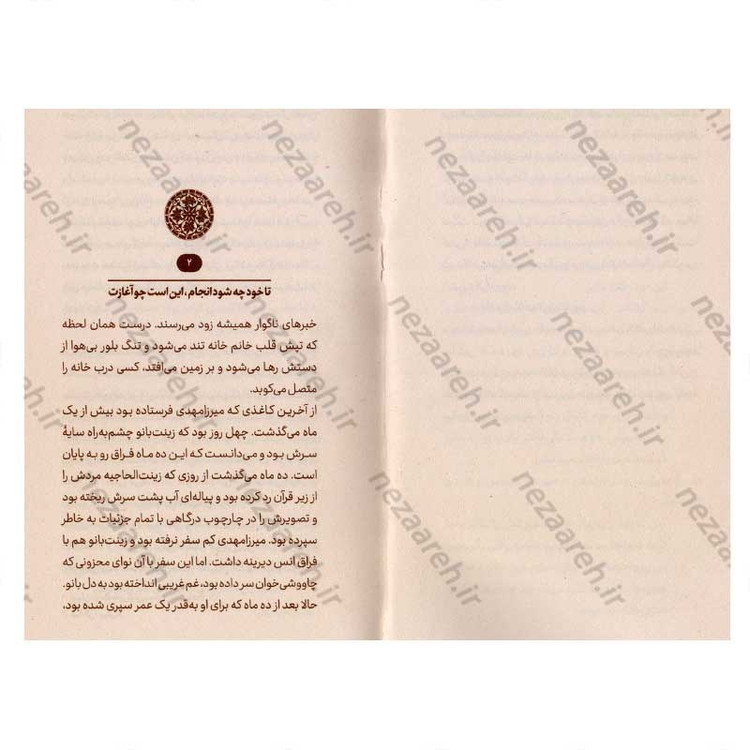 ۲
تا خود چه شود انجام، این است چو آغازت
خبرهای ناگوار همیشه زود می‌رسند. درست همان لحظه
که تپش قلب خانم خانه تند می‌شود و تنگ بلور بی‌هوا از
دستش رها می‌شود و بر زمین می‌افتد، کسی درب خانه را
متصل می‌کوبد.
از آخرین کاغذی که میرزامهدی فرستاده بود بیش از یک
ماه می‌گذشت. چهل روز بود که زینت‌بانو چشم‌به‌راه سایهٔ
سرش بود و می‌دانست که این ده ماه فراق رو به پایان
است. ده ماه می‌گذشت از روزی که زینت‌الحاجیه مردش را
از زیر قرآن رد کرده بود و پیاله‌ای آب پشت سرش ریخته بود
و تصویرش را در چارچوب درگاهی با تمام جزئیات به خاطر
سپرده بود. میرزامهدی کم سفر نرفته بود و زینت‌بانو هم با
فراق انس دیرینه داشت. اما این سفر با آن نوای محزونی که
چاووشی‌خوان سر داده بود، غم غریبی انداخته بود به دل بانو.
حالا بعد از ده ماه که برای او به‌قدر یک عمر سپری شده بود،
nezaareh.ir
nezaareh.ir
nezaareh.ir
nezaareh.ir
nezaareh.ir
nezaareh.ir
nezaareh.ir
nezaareh.ir
nezaareh.ir